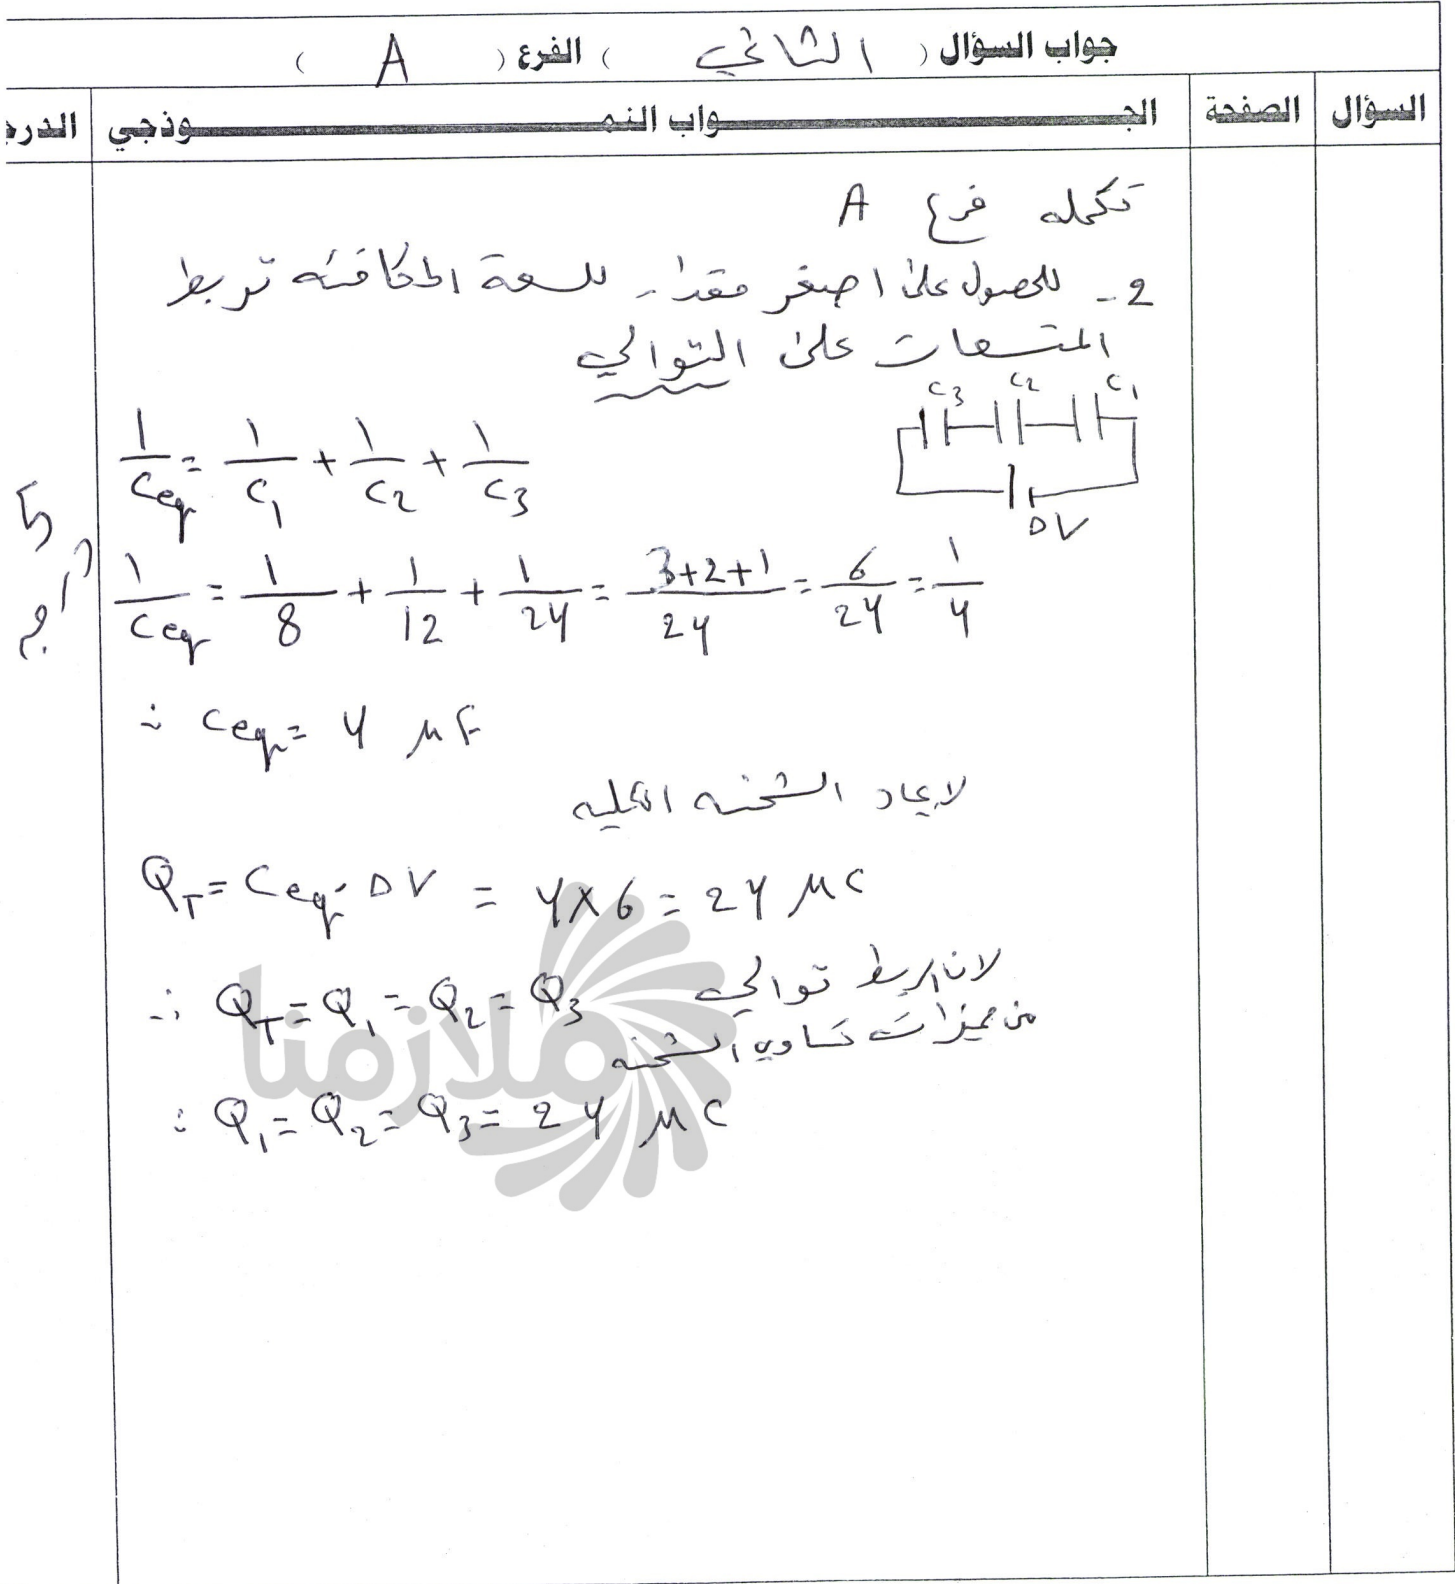 جواب السؤال ( الثاني ) الفرع ( A )
السؤال الصفحة الجـــواب النمـــوذجي الدرج
تكمله فرع A
2- للحصول على اصغر مقدار للسعة المكافئه تربط
المتسعات على التوالي
C3 C2 C1
1/Ceq = 1/C1 + 1/C2 + 1/C3
ΔV
5
1/Ceq = 1/8 + 1/12 + 1/24 = 3+2+1/24 = 6/24 = 1/4
∴ Ceq = 4 μF
لايجاد الشحنه الكليه
QT = Ceq · ΔV = 4 × 6 = 24 μC
لان الربط توالي
∴ QT = Q1 = Q2 = Q3
من مميزات تساوي الشحنه
ملازمنا
∴ Q1 = Q2 = Q3 = 24 μC